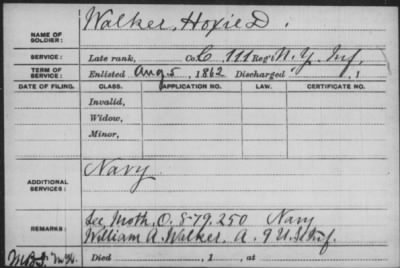 NAME OF SOLDIER: Walker, Hoxie D.
SERVICE: Late rank, Co. C, 111 Reg't N.Y. Inf.
TERM OF SERVICE: Enlisted Aug 5, 1862 Discharged , 1
DATE OF FILING. CLASS. APPLICATION NO. LAW. CERTIFICATE NO.
Invalid,
Widow,
Minor,
ADDITIONAL SERVICES: Navy
REMARKS: See Moth. O. 579,250 Navy
William A. Walker. A. 9 U.S. Inf.
Died , 1 , at